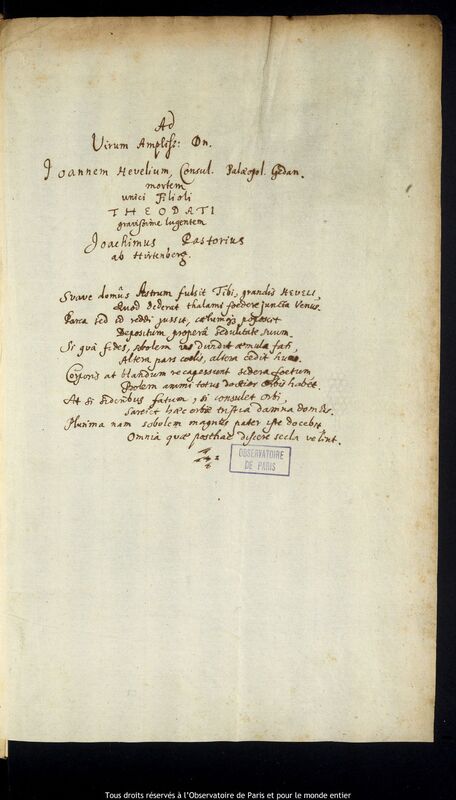 Ad
Virum Ampliss: Dn.
Joannem Hevelium, Consul. Palæopol. Gedan.
mortem
unici Filioli
THEODATI
gravissime lugentem
Joachimus Pastorius
ab Hirtenberg.
Suave domûs Astrum fulsit Tibi, grandis HEVELI,
Quod dederat thalami foedere juncta Venus.
Parca sed id reddi jussit, cælumq; poposcit
Depositum properâ sedulitate suum.
Si qua fides, sobolem dividunt æmula fati,
Altera pars coelis, altera cedit humo.
Corporis at blandum recapessent sidera foetum
Prolem animi totus doctior orbis habet.
At si sideribus fatum, si consulet orbi,
Sarciet hæc orbæ tristia damna domûs.
Plurima nam sobolem magnus pater iste docebit,
Omnia quæ posthac discere secla velint.
OBSERVATOIRE
DE PARIS
Tous droits réservés à l'Observatoire de Paris et pour le monde entier